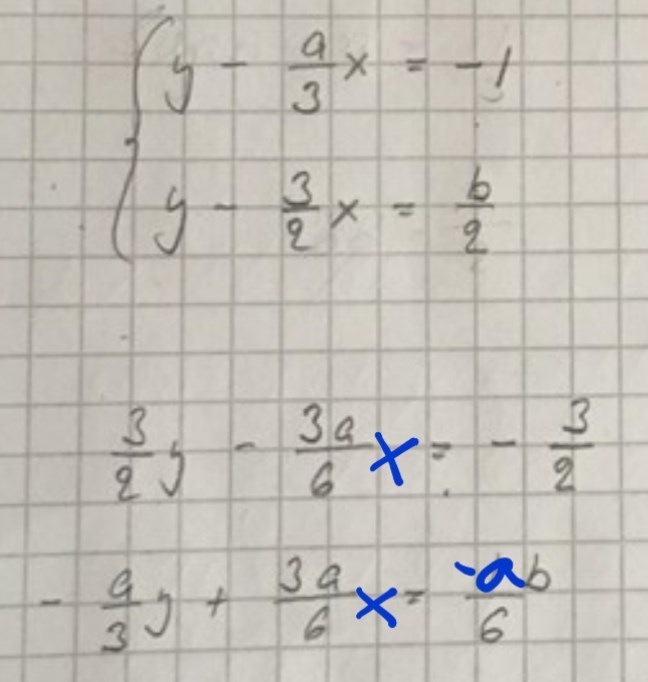 y - a/3 x = -1
y - 3/2 x = b/2
3/2 y - 3a/6 x = - 3/2
- a/3 y + 3a/6 x = -ab/6